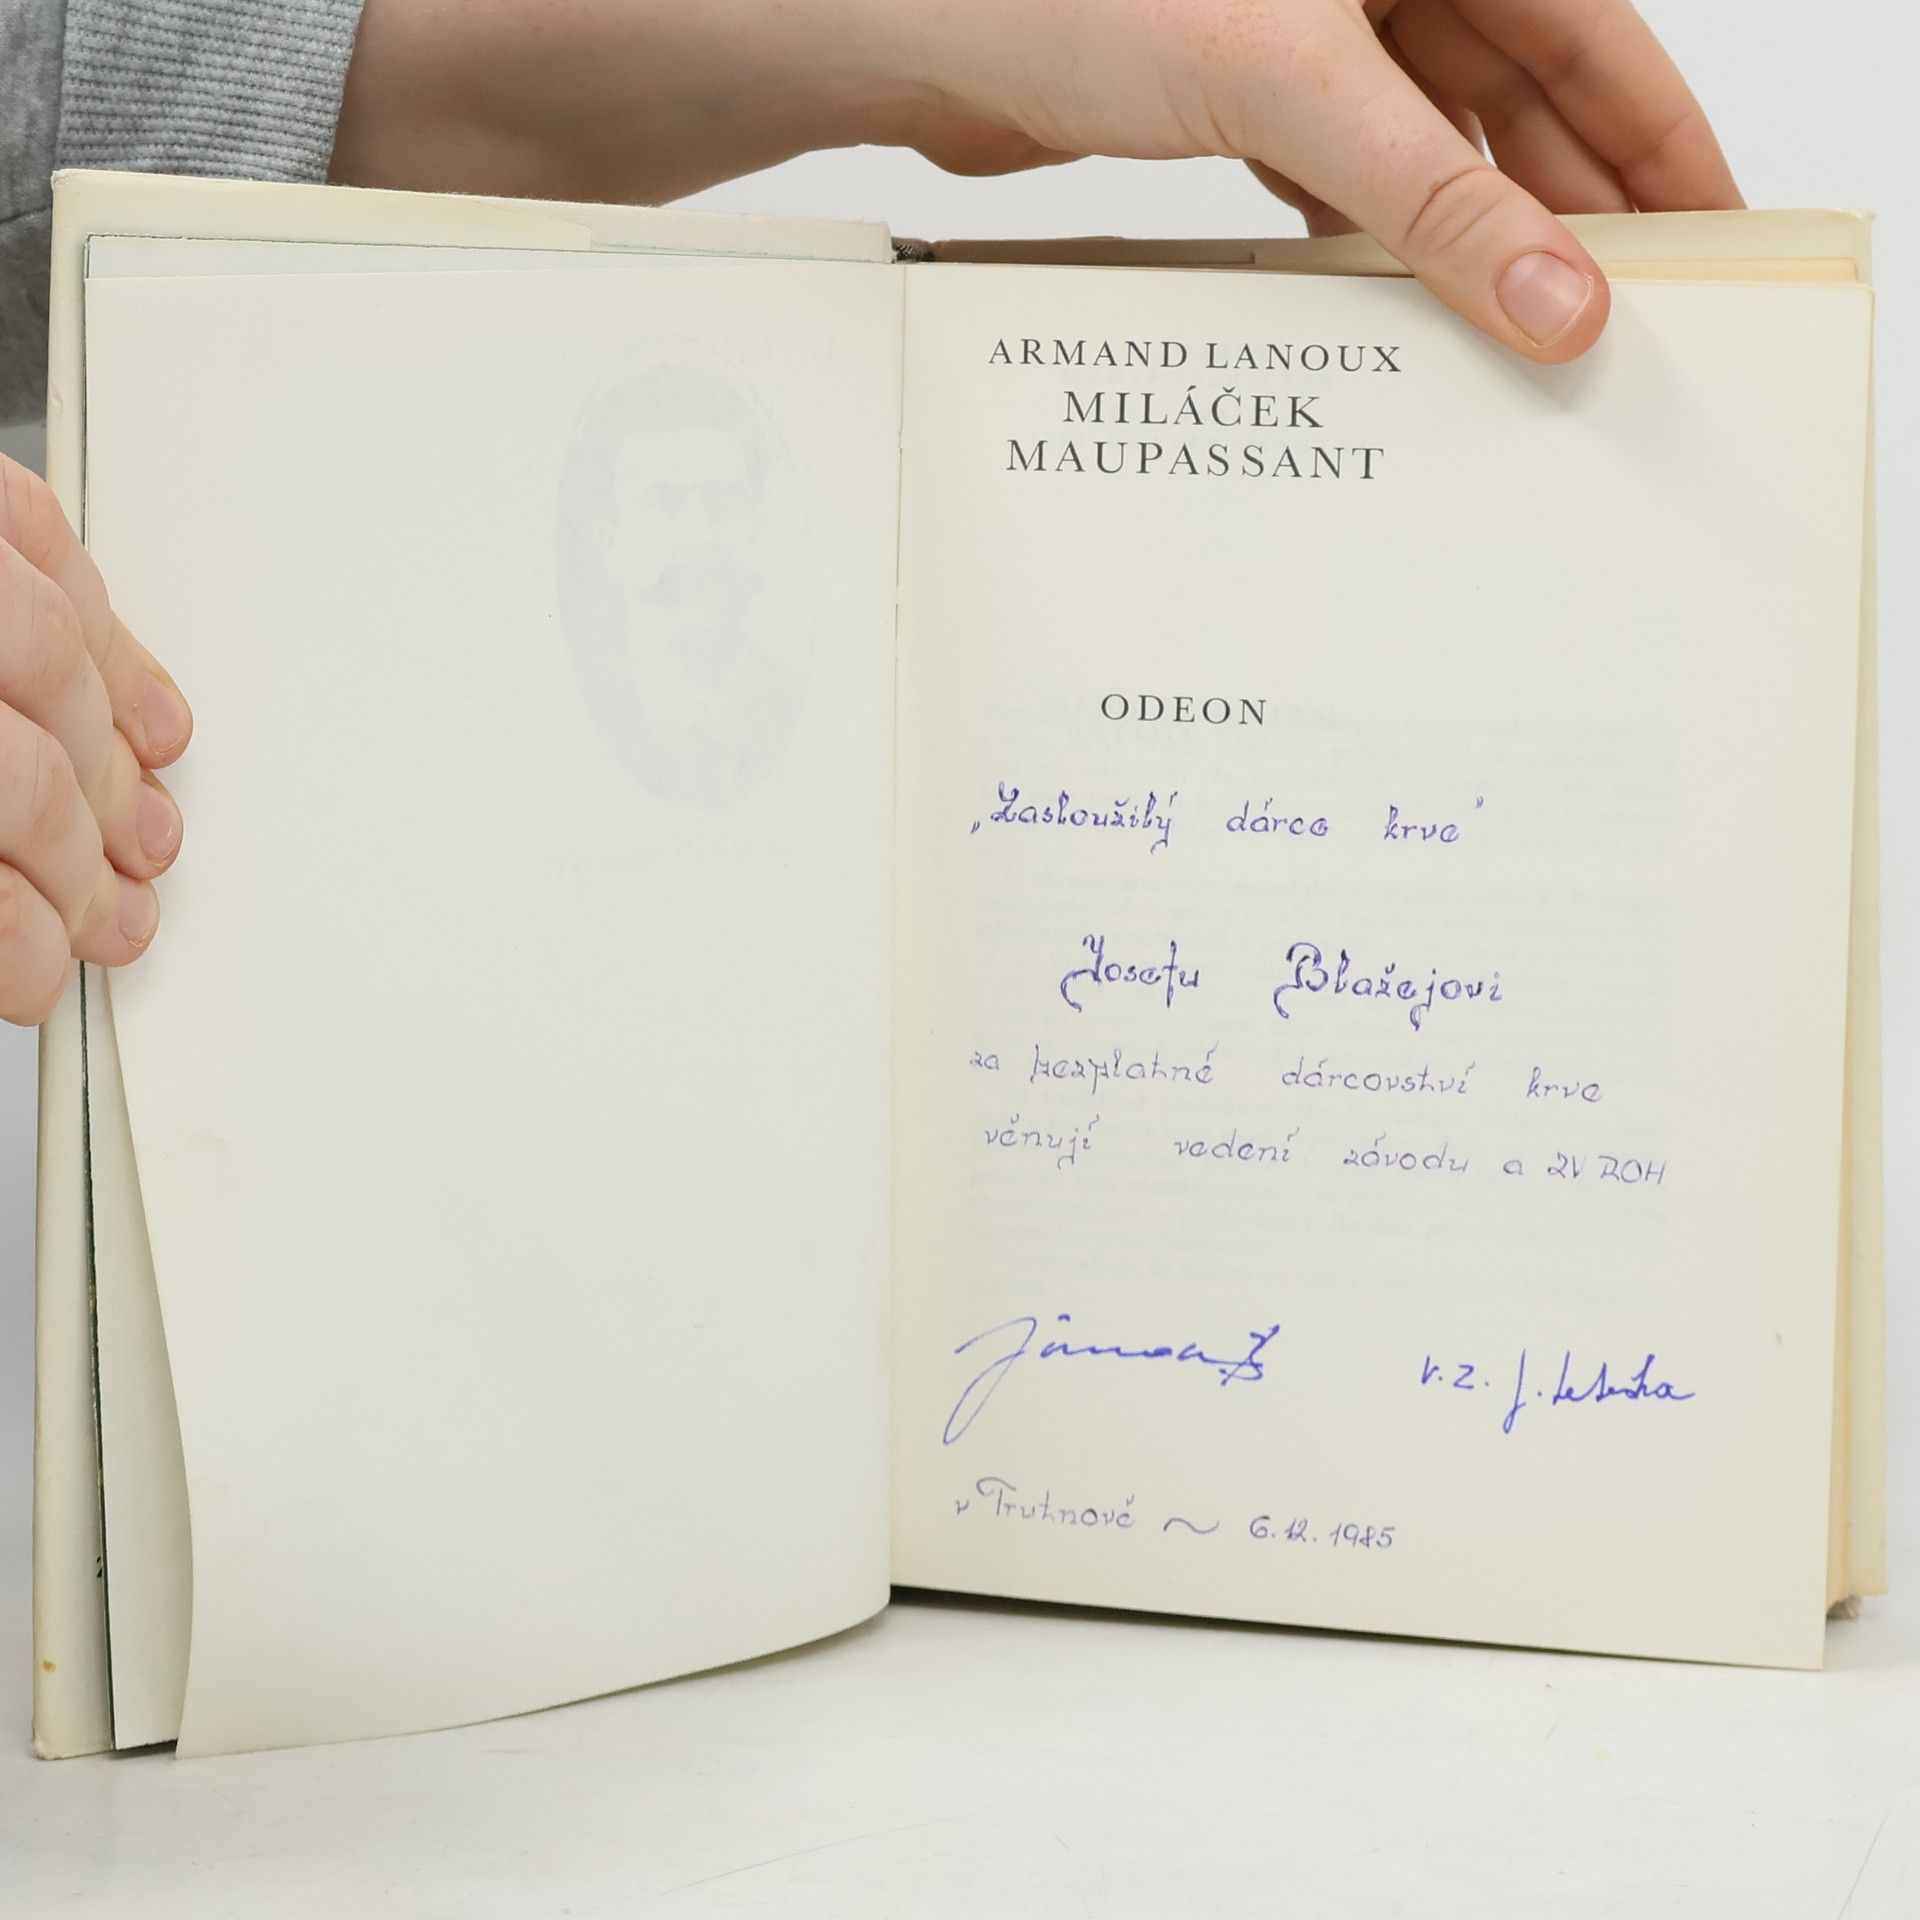 ARMAND LANOUX
MILÁČEK
MAUPASSANT
ODEON
„Zasloužilý dárce krve"
Josefu Blažejovi
za bezplatné dárcovství krve
věnují vedení závodu a ZV ROH
v.z. J.
v Trutnově ~ 6.12.1985